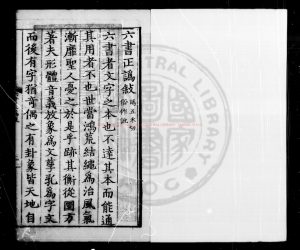 六書正譌敘 譌五禾切 俗作訛
六書者文字之本也不達其本而能通
其用者不也世當鴻荒結繩為治風氣
漸靡聖人憂之於是乎跡其衡從圜方
著夫形體音義放象為文孳乳為字文
而後有字猶奇偶之有卦象皆天地自